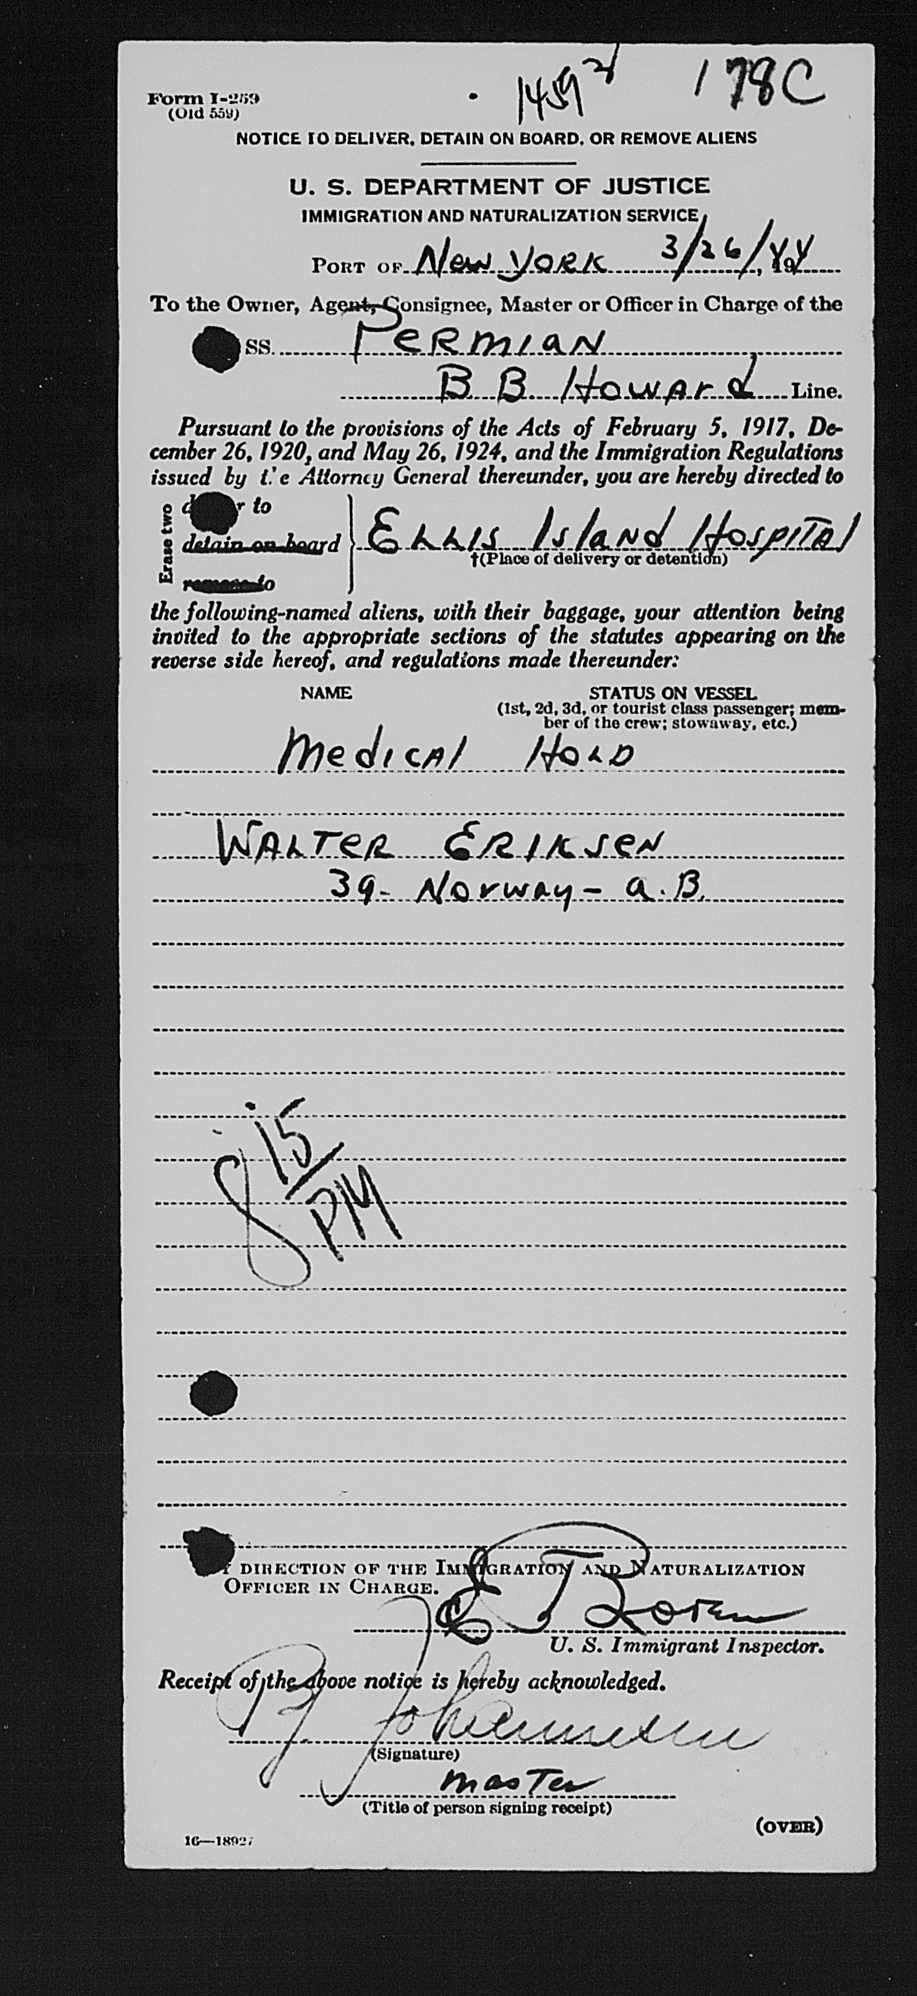 Form I-259
(Old 559)
1459 178C
NOTICE TO DELIVER, DETAIN ON BOARD, OR REMOVE ALIENS
U. S. DEPARTMENT OF JUSTICE
IMMIGRATION AND NATURALIZATION SERVICE
PORT OF New York 3/26/44, 194
To the Owner, Agent, Consignee, Master or Officer in Charge of the
SS. Permian
B B Howard Line.
Pursuant to the provisions of the Acts of February 5, 1917, De-
cember 26, 1920, and May 26, 1924, and the Immigration Regulations
issued by the Attorney General thereunder, you are hereby directed to
Erase two
to
detain on board Ellis Island Hospital
†(Place of delivery or detention)
remove to
the following-named aliens, with their baggage, your attention being
invited to the appropriate sections of the statutes appearing on the
reverse side hereof, and regulations made thereunder:
NAME STATUS ON VESSEL
(1st, 2d, 3d, or tourist class passenger; mem-
ber of the crew; stowaway, etc.)
Medical Hold
Walter Eriksen
39- Norway - a.B.
8 15 PM
DIRECTION OF THE IMMIGRATION AND NATURALIZATION
OFFICER IN CHARGE.
U. S. Immigrant Inspector.
Receipt of the above notice is hereby acknowledged.
Johannesen
(Signature)
master
(Title of person signing receipt)
(OVER)
16—18927